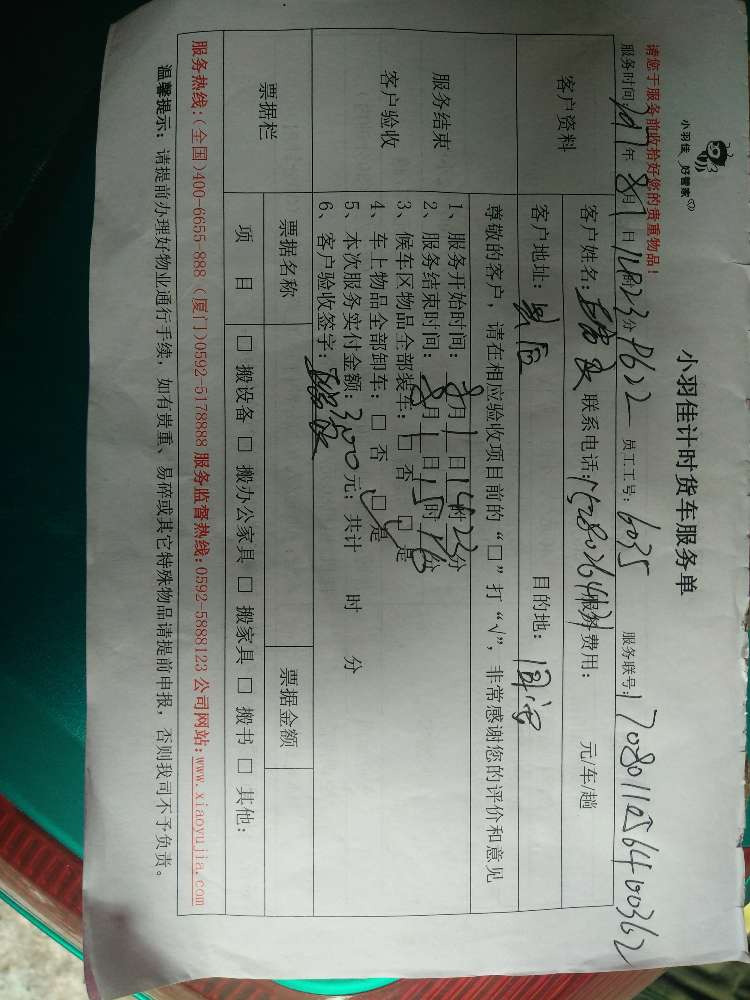 小羽佳 好管家
小羽佳计时货车服务单
请您于服务前收拾好您的贵重物品！
服务时间: 年 8月1日 14时23分 员工工号: 6035 服务联号:
客户资料
客户姓名: 联系电话: 服务费用: 元/车/趟
客户地址: 目的地:
服务结束
客户验收
尊敬的客户，请在相应验收项目前的“□”打“√”，非常感谢您的评价和意见
1、服务开始时间: 8月1日14时23分
2、服务结束时间: 8月1日15时 份
3、候车区物品全部装车: □ 否 □ 是
4、车上物品全部卸车: □ 否 □ 是
5、本次服务实付金额: 300元; 共计 时 分
6、客户验收签字:
票据栏
票据名称 票据金额
项 目 □ 搬设备 □ 搬办公家具 □ 搬家具 □ 搬书 □ 其他:
服务热线:(全国)400-6655-888 (厦门)0592-5178888 服务监督热线:0592-5888123 公司网站:www.xiaoyujia.com
温馨提示: 请提前办理好物业通行手续, 如有贵重、易碎或其它特殊物品请提前申报, 否则我司不予负责。